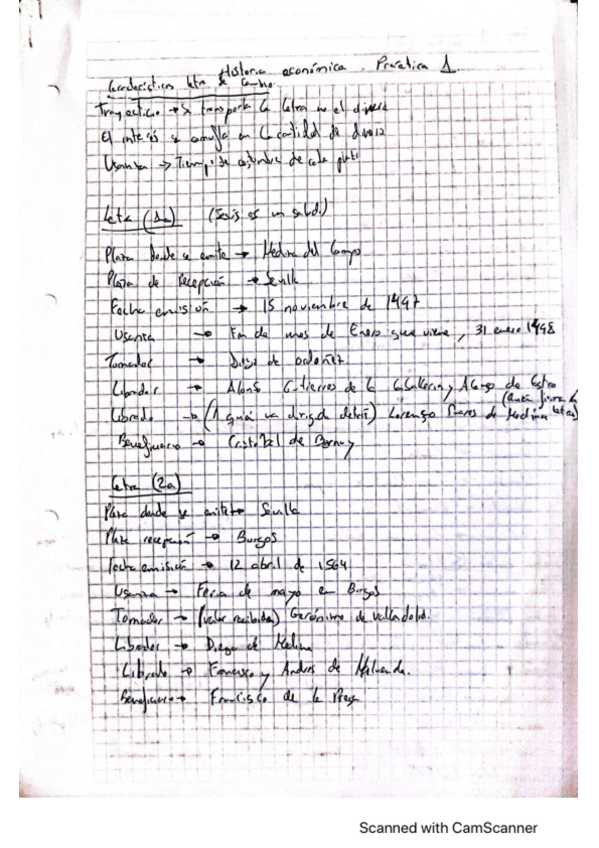 Historia económica. Practica 1
Características letra de cambio.
Trayecticio → Se transporta la letra no el dinero
El interés se camufla en la cantidad de dinero
Usanza → Tiempo de costumbre de cada plaza
Letra (1a)
Plaza donde se emite → Medina del Campo
Plaza de recepción → Sevilla
Fecha emisión → 15 noviembre de 1497
Usanza → Fin de mes de Enero que viene, 31 enero 1498
Tomador → Diego de ordoñez
Librador → Alonso Gutierres de la Caballeria y Alonso de Castro
(Quién firma la letra)
Librado → (A quién va dirigida) Lorenzo de Medina
Beneficiario → Cristobal de Bernuy
Letra (2a)
Plaza donde se emite → Sevilla
Plaza recepción → Burgos
Fecha emisión → 12 abril de 1564
Usanza → Feria de mayo en Burgos
Tomador → (valor recibido) Gerónimo de valladolid.
Librador → Diego de Medina
Librado → Francisco y Andrés de Maluenda.
Beneficiario → Francisco de la Presa
Scanned with CamScanner